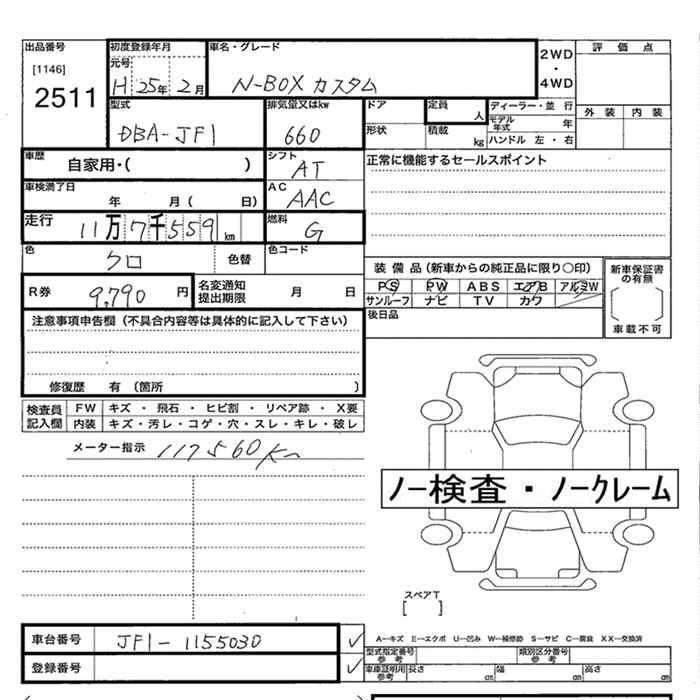 出品番号
[1146]
2511
初度登録年月
元号
H 25年 2月
車名・グレード
N-BOX カスタム
2WD
・
4WD
評価点
外装 内装
型式
DBA-JF1
排気量又はkw
660
ドア
形状
定員
人
積載
kg
ディーラー・並行
モデル年式 年
ハンドル 左・右
車歴
自家用・( )
シフト
AT
正常に機能するセールスポイント
車検満了日
年 月 ( 日)
AC
AAC
走行
11万7千559km
燃料
G
色
クロ
色替
色コード
装備品(新車からの純正品に限り○印)
PS PW ABS エアB アルミW
サンルーフ ナビ TV カワ
新車保証書の有無
車載不可
後日品
R券
9,790 円
名変通知
提出期限
月 日
注意事項申告欄(不具合内容等は具体的に記入して下さい)
修復歴 有 (箇所 )
検査員
記入欄
FW キズ・飛石・ヒビ割・リペア跡・X要
内装 キズ・汚レ・コゲ・穴・スレ・キレ・破レ
メーター指示 117560km
ノー検査・ノークレーム
スペアT
[ ]
車台番号
JF1-1155030
登録番号
A―キズ E―エクボ U―凹み W―補修跡 S―サビ C―腐食 XX―交換済
型式指定番号
参考
類別区分番号
参考
車庫証明用
参考
長さ cm 幅 cm 高さ cm